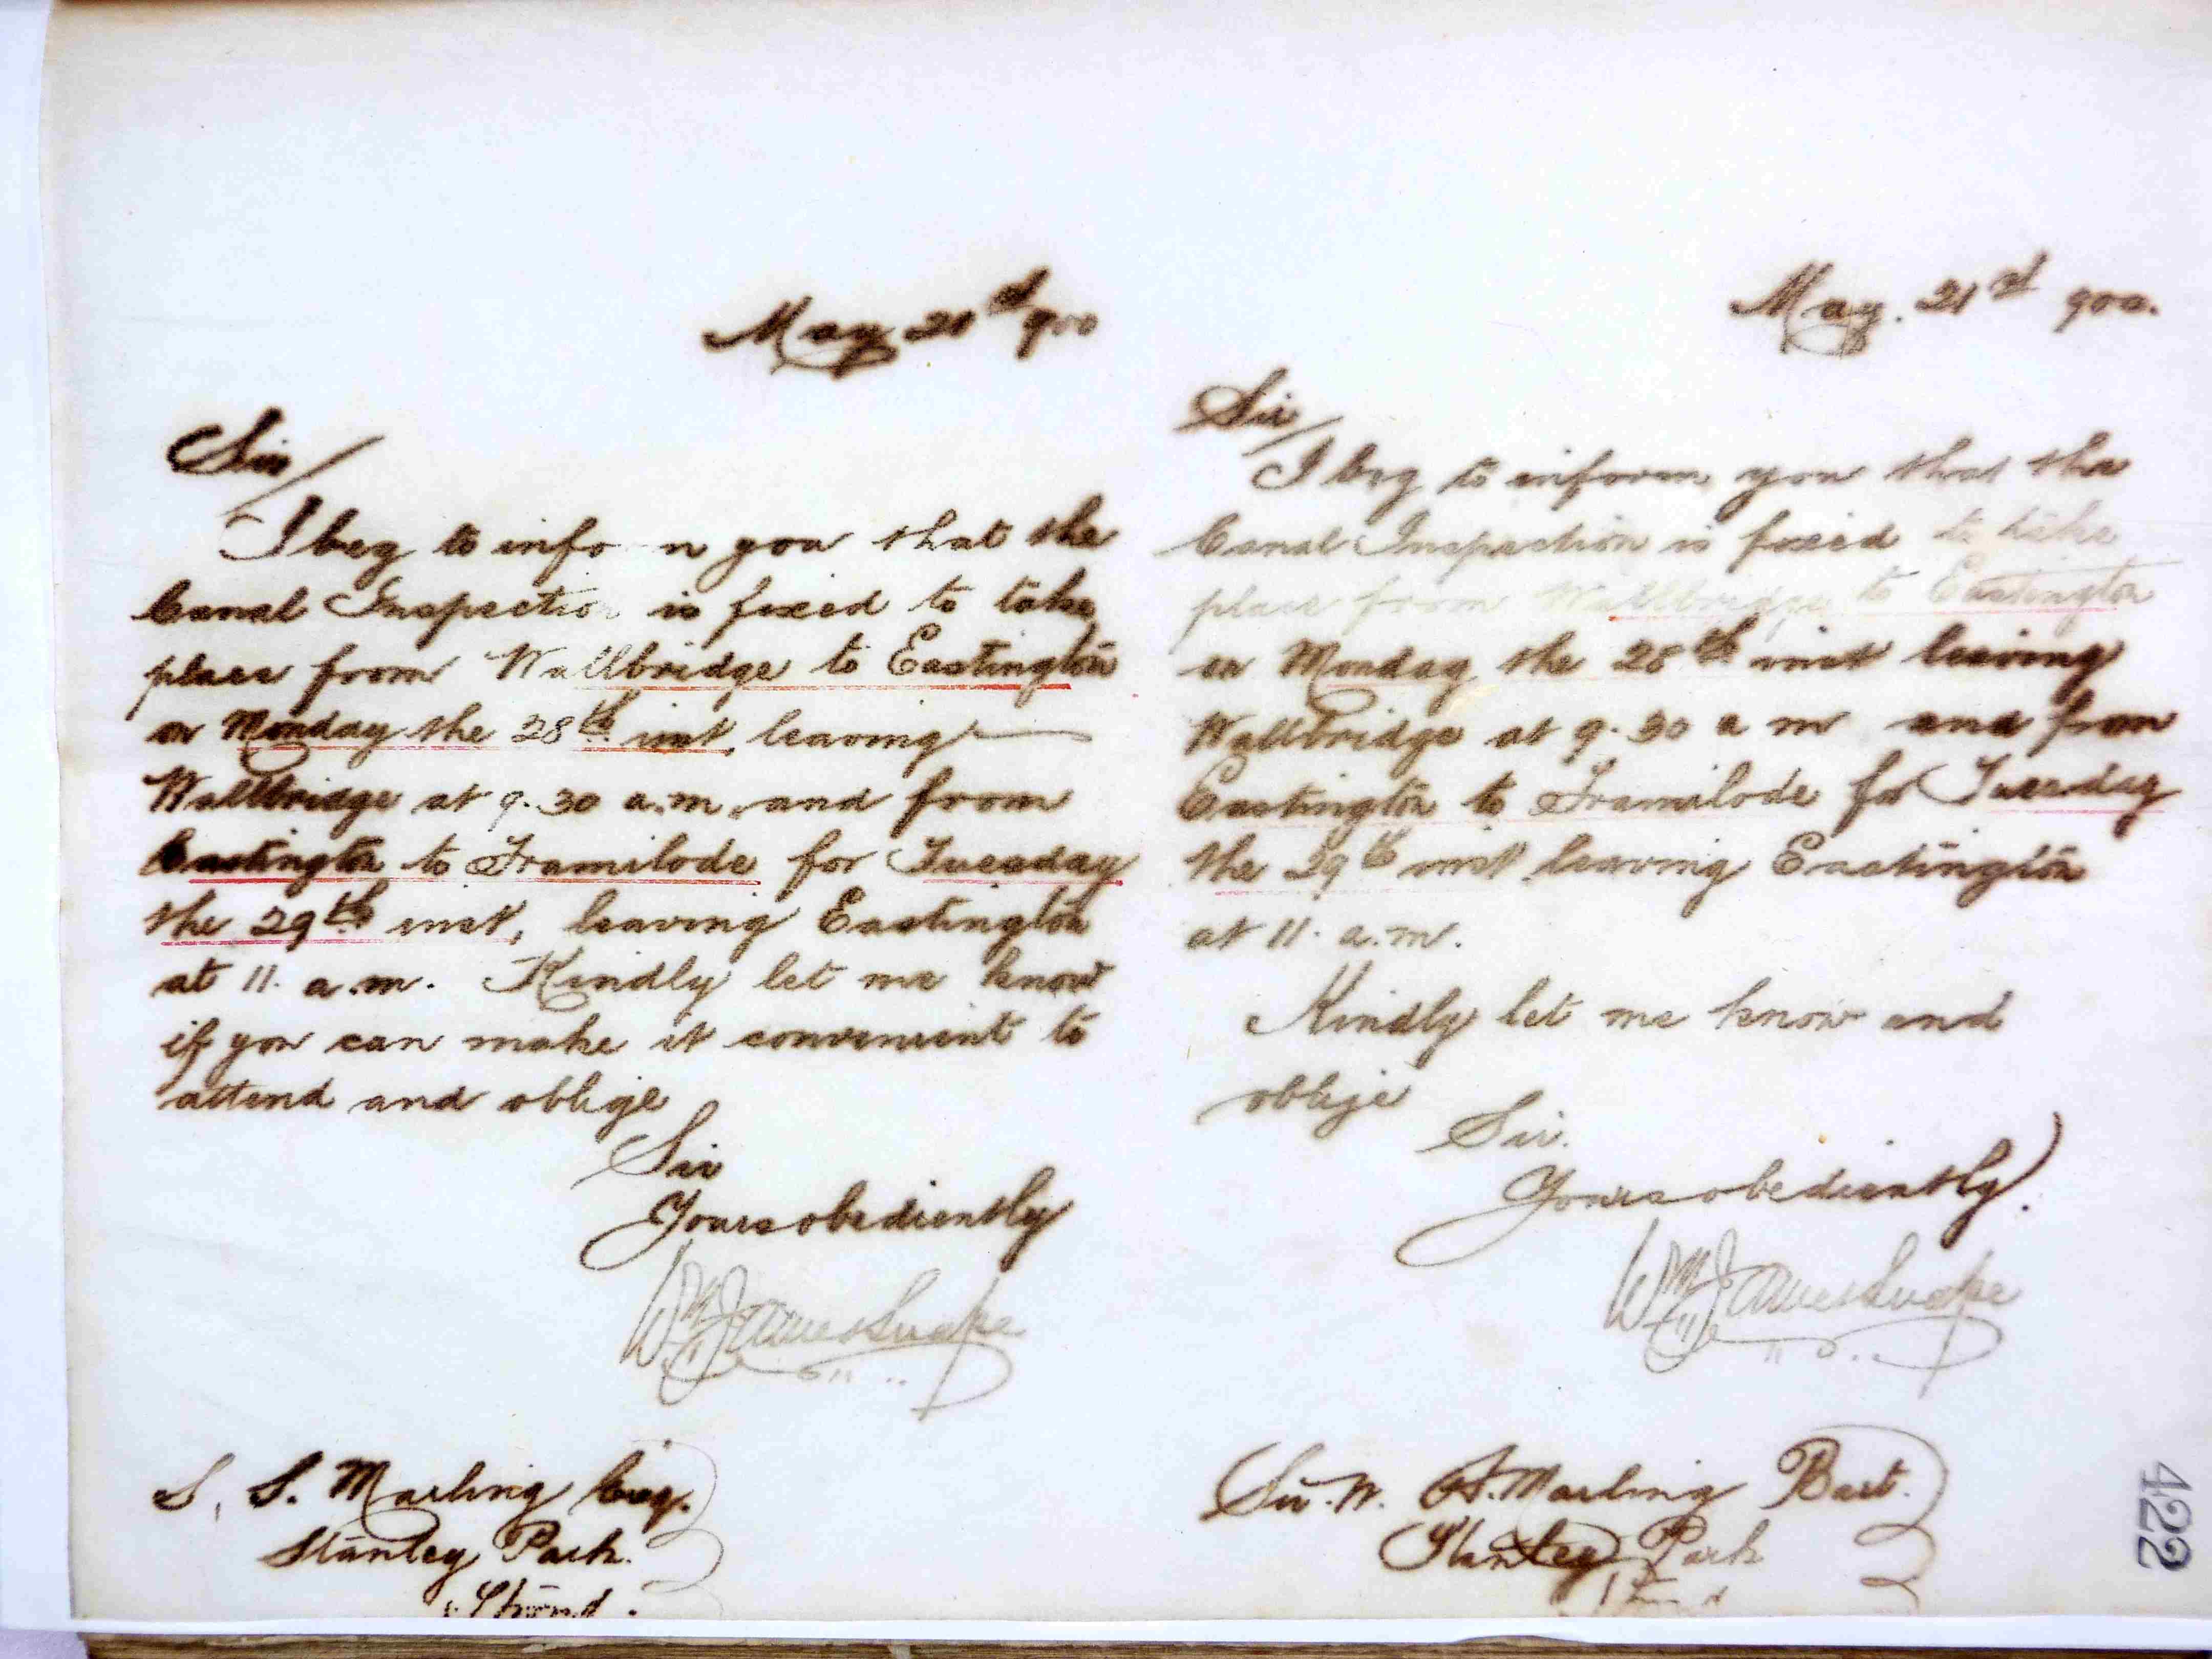 May 21st 900
Sir/
I beg to info n you that the
Canal Inspection is fixed to take
place from Wallbridge to Eastington
on Monday the 28th inst, leaving
Wallbridge at 9.30 a.m. and from
Eastington to Framilode for Tuesday
the 29th inst, leaving Eastington
at 11. a.m. Kindly let me know
if you can make it convenient to
attend and oblige
Sir
Yours obediently
Wm James Snape
S. S. Marling Esq.
Stanley Park.
Stroud.
May. 21st 900.
Sir/
I beg to inform you that the
Canal Inspection is fixed to take
place from Wallbridge to Eastington
on Monday the 28th inst leaving
Wallbridge at 9.30 a m and from
Eastington to Framilode for Tuesday
the 29th inst leaving Eastington
at 11. a.m.
Kindly let me know and
oblige
Sir.
Yours obediently.
Wm James Snape
Sir. W. H. Marling Bart.
Stanley Park
Stroud
422